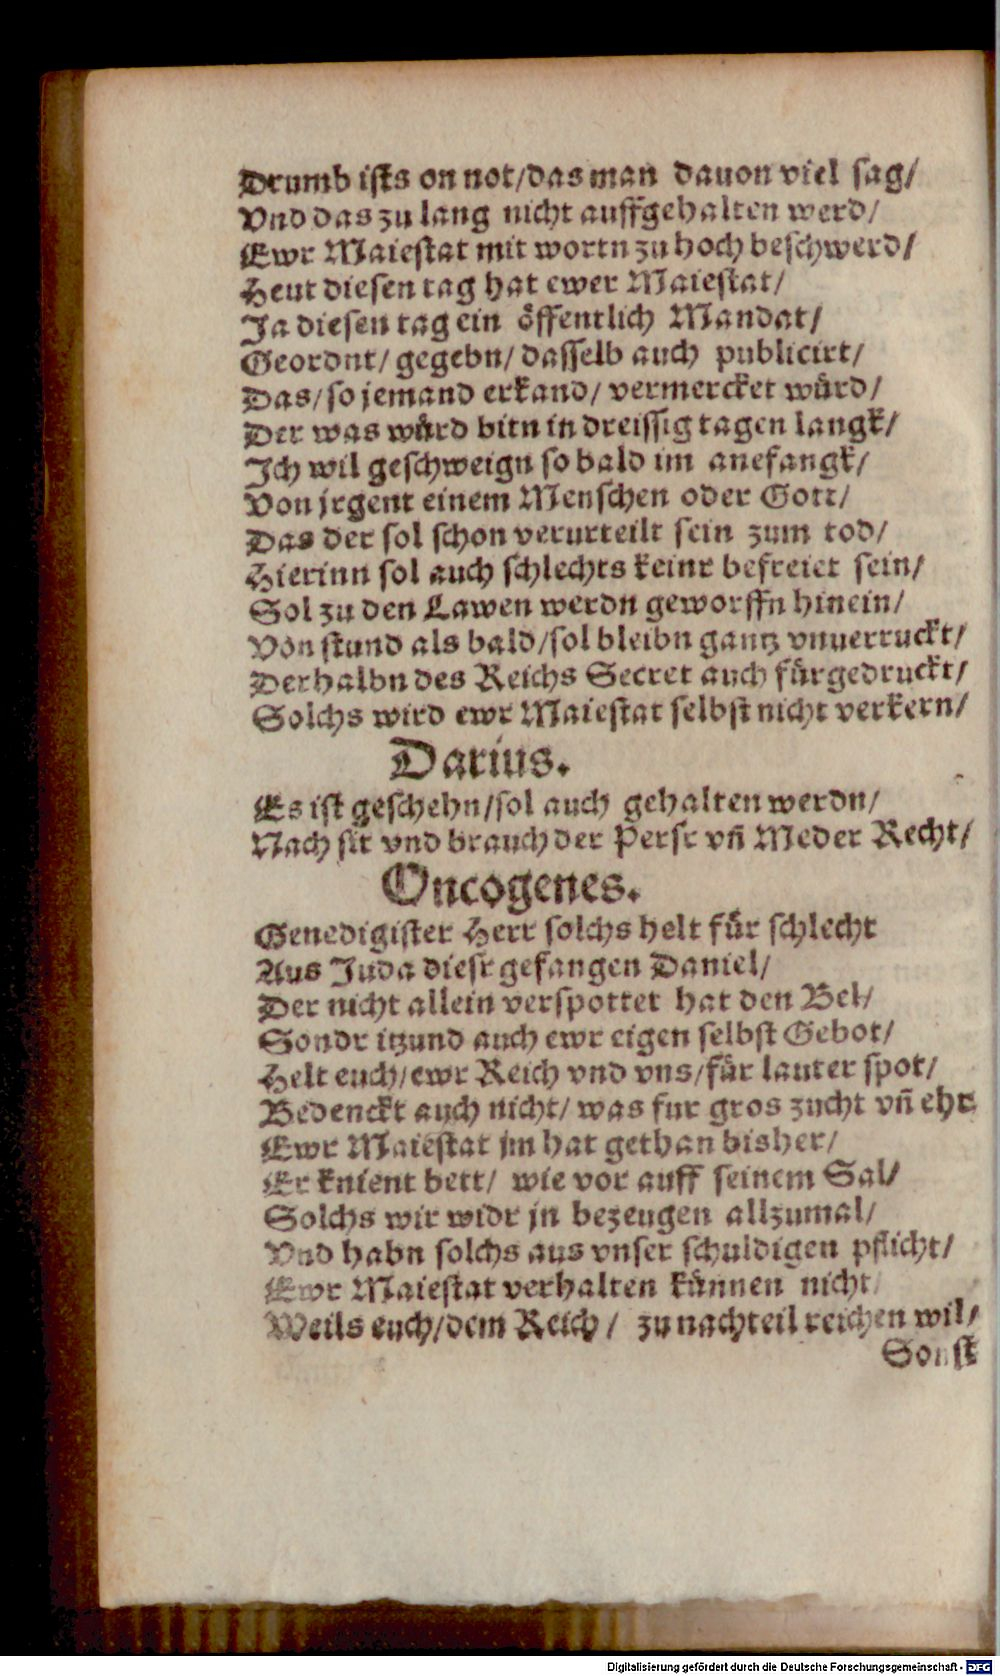 Drumb ists on not/das man dauon viel sag/
Vnd das zu lang nicht auffgehalten werd/
Ewr Maiestat mit wortn zu hoch beschwerd/
Heut diesen tag hat ewer Maiestat/
Ja diesen tag ein öffentlich Mandat/
Geordnt/ gegebn/ dasselb auch publicirt/
Das/ so jemand erkand/ vermercket würd/
Der was würd bitn in dreissig tagen langk/
Ich wil geschweign so bald im anefangk/
Von jrgent einem Menschen oder Gott/
Das der sol schon verurteilt sein zum tod/
Hierinn sol auch schlechts keinr befreiet sein/
Sol zu den Lawen werdn geworffn hinein/
Von stund als bald/sol bleibn gantz vnuerruckt/
Derhalbn des Reichs Secret auch fürgedruckt/
Solchs wird ewr Maiestat selbst nicht verkern/
Darius.
Es ist geschehn/sol auch gehalten werdn/
Nach sit vnd brauch der Persr vñ Meder Recht/
Oncogenes.
Genedigister Herr solchs helt für schlecht
Aus Juda diesr gefangen Daniel/
Der nicht allein verspottet hat den Bel/
Sondr itzund auch ewr eigen selbst Gebot/
Helt euch/ewr Reich vnd vns/für lauter spot/
Bedenckt auch nicht/ was fur gros zucht vñ ehr
Ewr Maiestat jm hat gethan bisher/
Er knient bett/ wie vor auff seinem Sal/
Solchs wir widr jn bezeugen allzumal/
Vnd habn solchs aus vnser schuldigen pflicht/
Ewr Maiestat verhalten künnen nicht/
Weils euch/dem Reich/ zu nachteil reichen wil/
Sonst
Digitalisierung gefördert durch die Deutsche Forschungsgemeinschaft - DFG